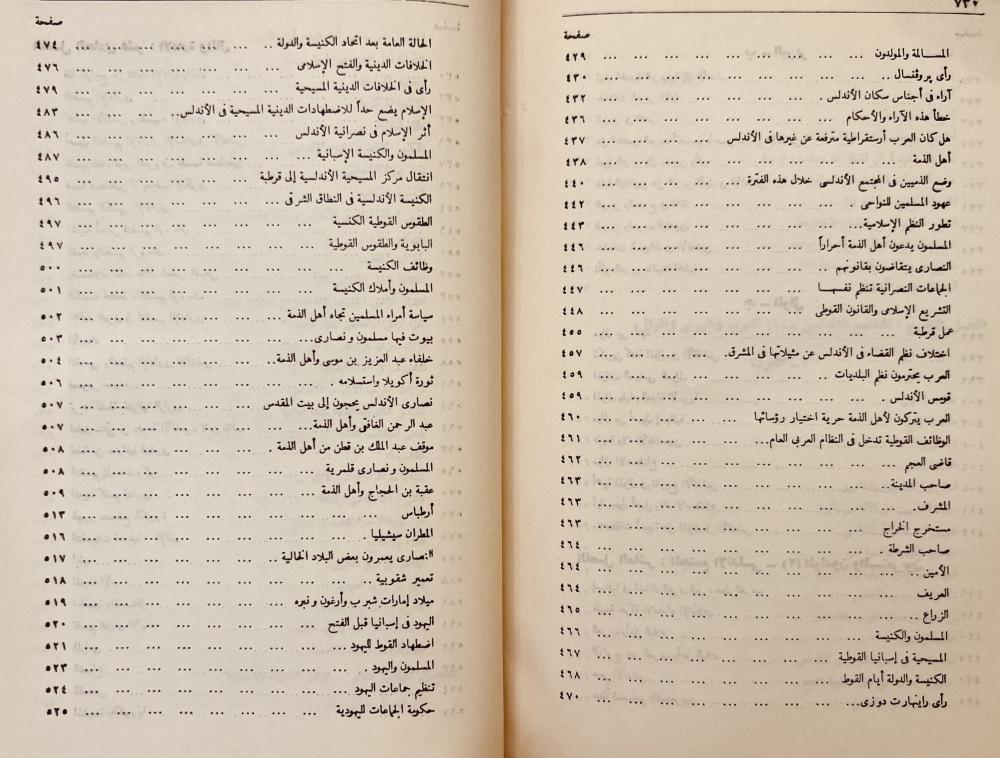 ٧٣٠
صفحة
المسالمة والمولدون ... ... ... ... ... ... ... ٤٢٩
رأى پروڤنسال .. ... ... ... ... ... ... ... ٤٣٠
آراء فى أجناس سكان الأندلس . ... ... ... ... ... ... ٤٣٢
خطأ هذه الآراء والأحكام ... ... ... ... ... ... ٤٣٦
هل كان العرب أرستقراطية مترفعة عن غيرها فى الأندلس ... ... ... ٤٣٧
أهل الذمة ... ... ... ... ... ... ... ... ٤٣٨
وضع الذميين فى المجتمع الأندلسى خلال هذه الفترة ... ... ... ... ٤٤٠
عهود المسلمين للنواحى . ... ... ... ... ... ... ... ٤٤٢
تطور النظم الإسلامية... ... ... ... ... ... ... ... ٤٤٣
المسلمون يدعون أهل الذمة أحراراً ... ... ... ... ... ... ٤٤٦
النصارى يتقاضون بقانونهم .. ... ... ... ... ... ... ٤٤٦
الجماعات النصرانية تنظم نفسها ... ... ... ... ... ... ٤٤٧
التشريع الإسلامى والقانون القوطى ... ... ... ... ... ... ٤٤٨
عمل قرطبة ... ... ... ... ... ... ... ... ٤٥٥
اختلاف نظم القضاء فى الأندلس عن مثيلاتها فى المشرق. ... ... ... ٤٥٧
العرب يحترمون نظم البلديات .. ... ... ... ... ... ... ٤٥٩
قومس الأندلس . ... ... ... ... ... ... ... ٤٥٩
العرب يتركون لأهل الذمة حرية اختيار رؤسائها ... ... ... ... ٤٦٠
الوظائف القوطية تدخل فى النظام العربى العام... ... ... ... ... ٤٦١
قاضى العجم ... ... ... ... ... ... ... ... ٤٦٢
صاحب المدينة.. ... ... ... ... ... ... ... ٤٦٣
المشرف. ... ... ... ... ... ... ... ... ٤٦٣
مستخرج الخراج ... ... ... ... ... ... ... ٤٦٣
صاحب الشرطة . ... ... ... ... ... ... ... ٤٦٤
الأمين .. ... ... ... ... ... ... ... ... ٤٦٤
العريف ... ... ... ... ... ... ... ... ٤٦٤
الزراع ... ... ... ... ... ... ... ... ٤٦٥
المسلمون والكنيسة ... ... ... ... ... ... ... ٤٦٦
المسيحية فى إسبانيا القوطية ... ... ... ... ... ... ٤٦٧
الكنيسة والدولة أيام القوط ... ... ... ... ... ... ٤٦٨
رأى راينهارت دوزى... ... ... ... ... ... ... ... ٤٧٠
صفحة
الحالة العامة بعد اتحاد الكنيسة والدولة .. ... ... ... ... ... ٤٧٤
الخلافات الدينية والفتح الإسلامى ... ... ... ... ... ... ٤٧٦
رأى فى الخلافات الدينية المسيحية ... ... ... ... ... ... ٤٧٩
الإسلام يضع حداً للاضطهادات الدينية المسيحية فى الأندلس.. ... ... ... ٤٨٣
أثر الإسلام فى نصرانية الأندلس ... ... ... ... ... ... ٤٨٦
المسلمون والكنيسة الإسبانية ... ... ... ... ... ... ٤٨٧
انتقال مركز المسيحية الأندلسية إلى قرطبة ... ... ... ... ... ٤٩٥
الكنيسة الأندلسية فى النطاق الشرقى ... ... ... ... ... ٤٩٦
الطقوس القوطية الكنسية ... ... ... ... ... ... ٤٩٧
البابوية والطقوس القوطية ... ... ... ... ... ... ٤٩٧
وظائف الكنيسة ... ... ... ... ... ... ... ٥٠٠
المسلمون وأملاك الكنيسة ... ... ... ... ... ... ٥٠١
سياسة أمراء المسلمين تجاه أهل الذمة ... ... ... ... ... ٥٠٢
بيوت فيها مسلمون ونصارى... ... ... ... ... ... ... ٥٠٣
خلفاء عبد العزيز بن موسى وأهل الذمة.. ... ... ... ... ... ٥٠٤
ثورة أكويلا واستسلامه . ... ... ... ... ... ... ... ٥٠٦
نصارى الأندلس يحجون إلى بيت المقدس ... ... ... ... ... ٥٠٧
عبد الرحمن الغافقى وأهل الذمة... ... ... ... ... ... ... ٥٠٧
موقف عبد الملك بن قطن من أهل الذمة . ... ... ... ... ... ٥٠٨
المسلمون ونصارى قلمرية ... ... ... ... ... ... ٥٠٨
عقبة بن الحجاج وأهل الذمة ... ... ... ... ... ... ٥٠٩
أرطباس ... ... ... ... ... ... ... ... ٥١٣
المطران سيشيليا . ... ... ... ... ... ... ... ٥١٦
النصارى يعمرون بعض البلاد الخالية ... ... ... ... ... ٥١٧
تعمير شقوبية ... ... ... ... ... ... ... ٥١٨
ميلاد إمارات شبرب وأرغون ونبره ... ... ... ... ... ٥١٩
اليهود فى إسبانيا قبل الفتح ... ... ... ... ... ... ٥٢٠
اضطهاد القوط لليهود ... ... ... ... ... ... ... ٥٢١
المسلمون واليهود . ... ... ... ... ... ... ... ٥٢٣
تنظيم جماعات اليهود ... ... ... ... ... ... ... ٥٢٤
حكومة الجماعات اليهودية ... ... ... ... ... ... ٥٢٥